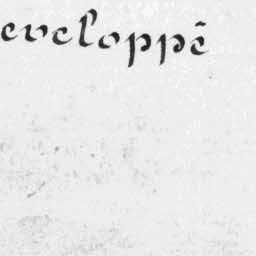 eveloppé